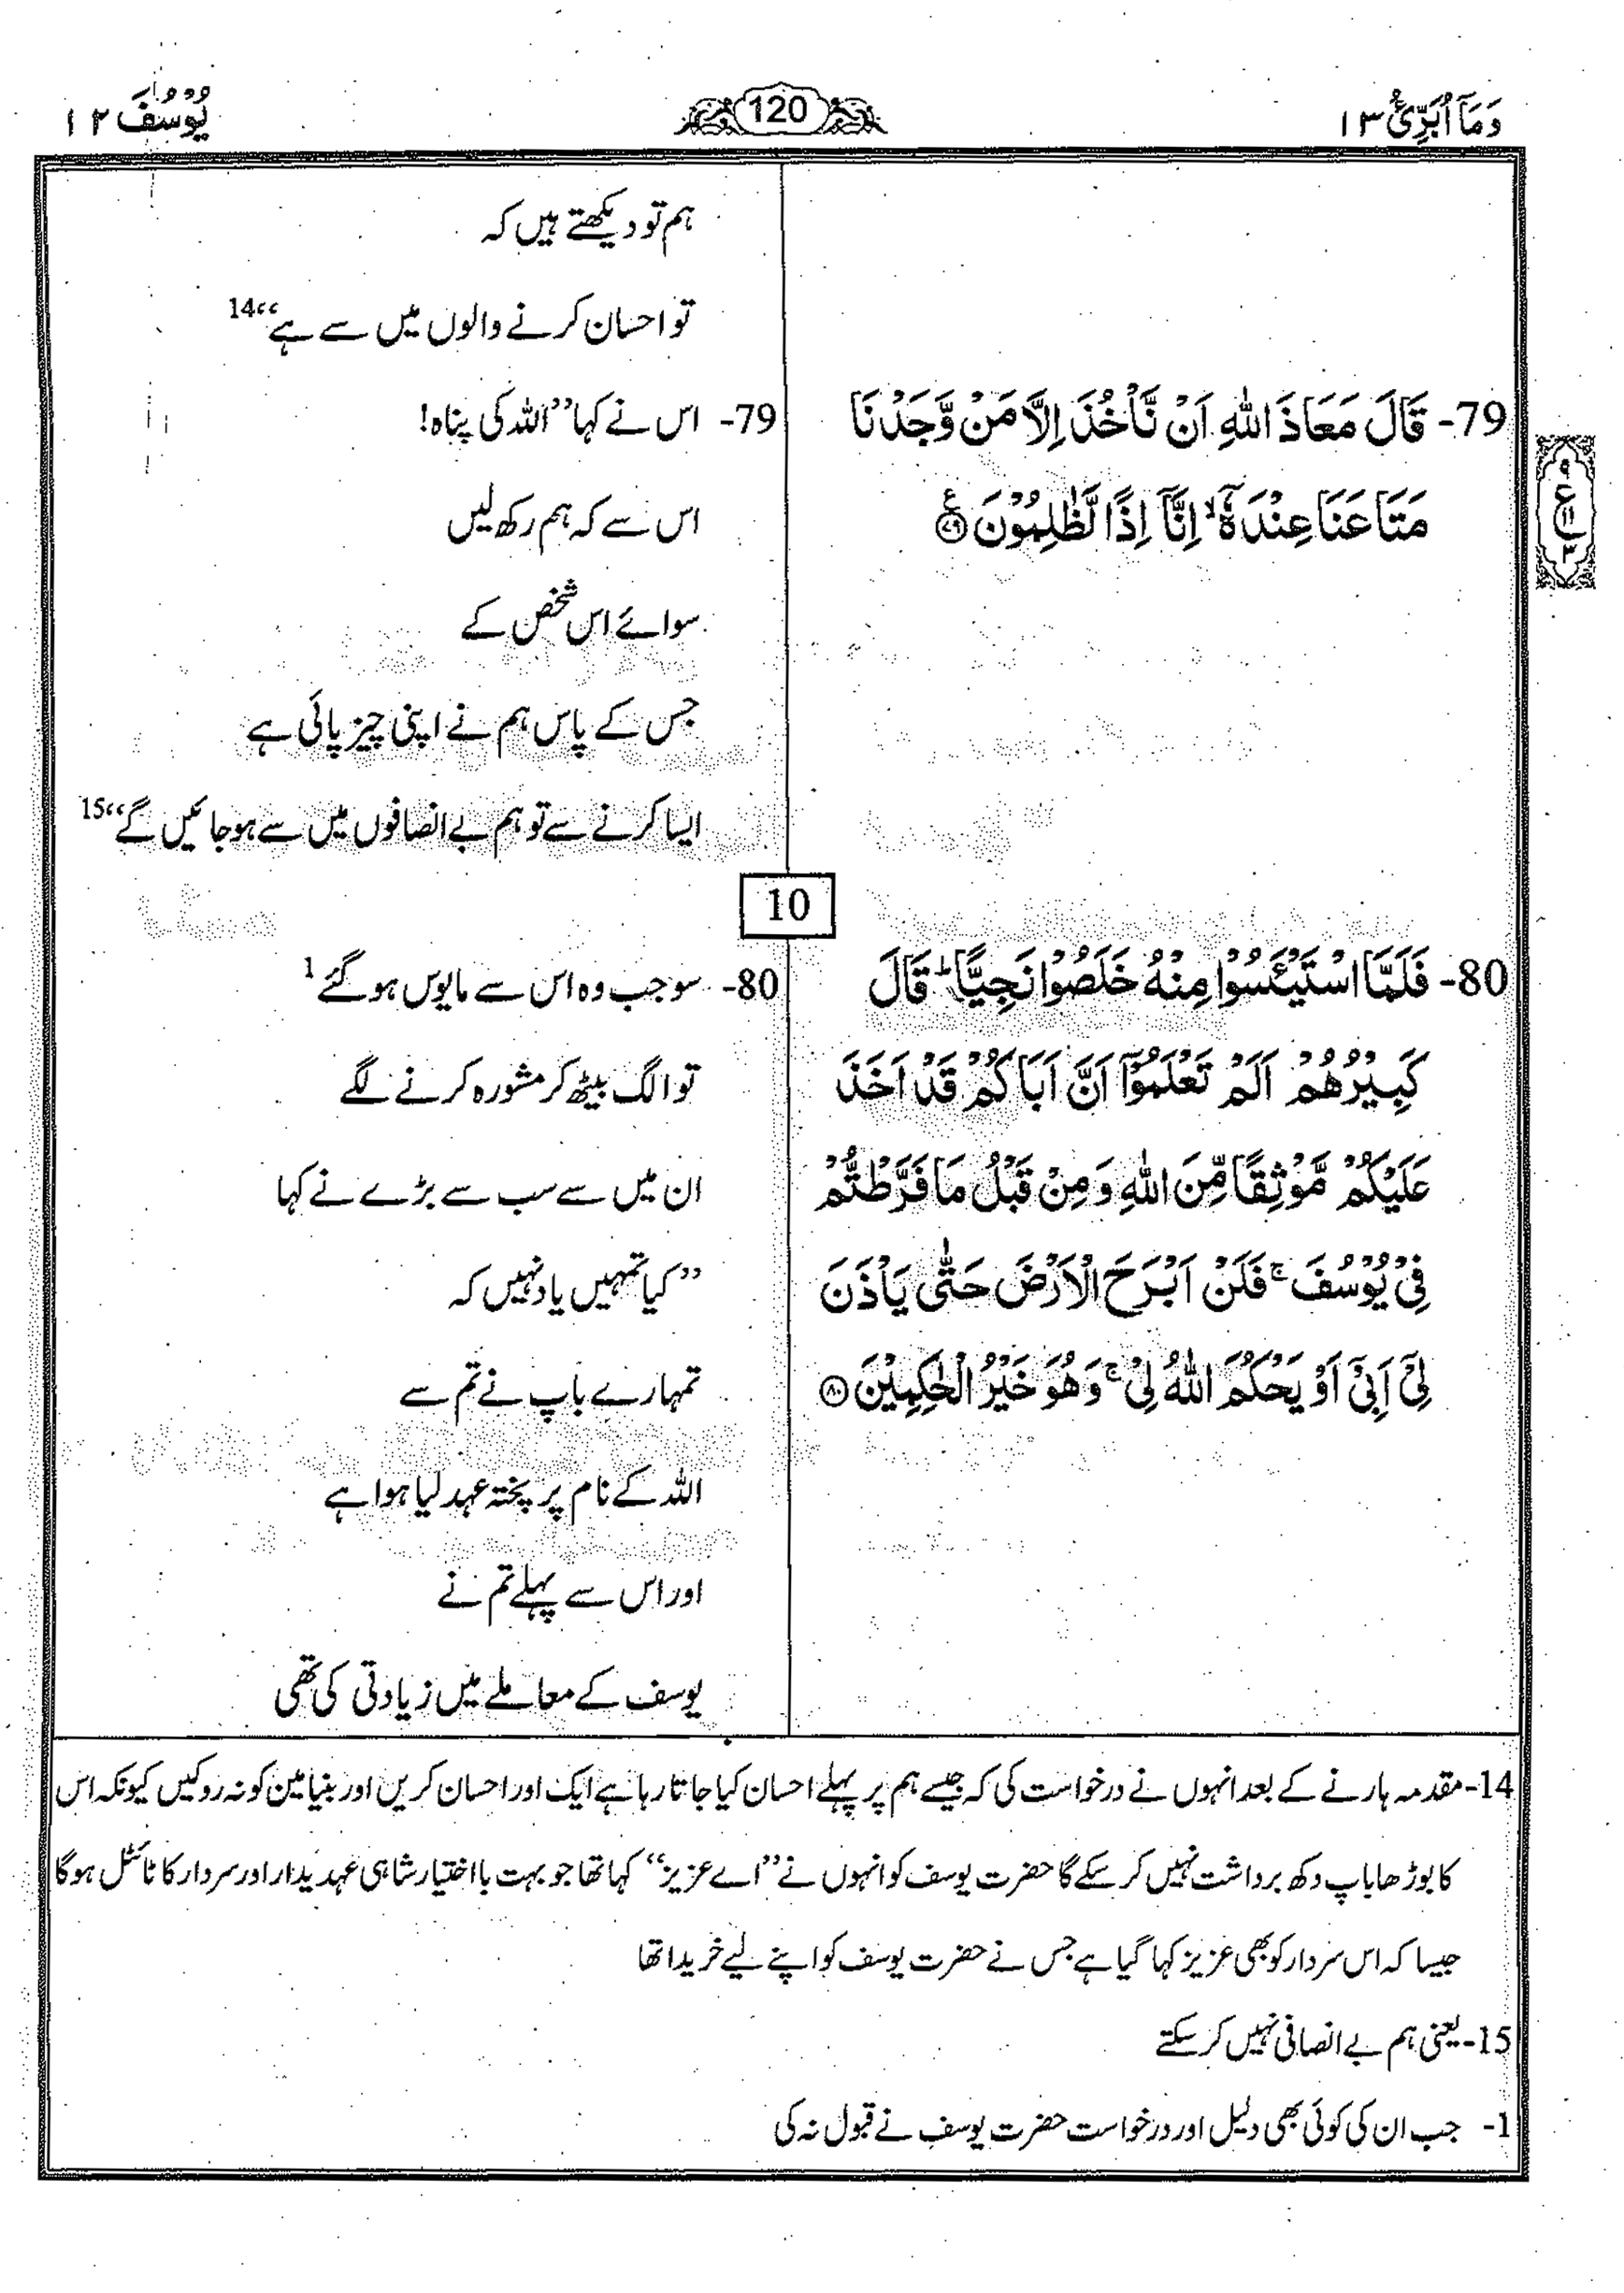 وَمَآ اُبَرِّئُ ١٣
120
يُوْسُف ١٢
ہم تو دیکھتے ہیں کہ
تو احسان کرنے والوں میں سے ہے“14
79- قَالَ مَعَاذَ اللّٰهِ اَنْ نَّاْخُذَ اِلَّا مَنْ وَّجَدْنَا
مَتَاعَنَا عِنْدَهٗٓ ۙ اِنَّآ اِذًا لَّظٰلِمُوْنَ ﴿٧٩﴾ ع
٩
ع
١١
٣
79- اس نے کہا ”اللہ کی پناہ!
اس سے کہ ہم رکھ لیں
سوائے اس شخص کے
جس کے پاس ہم نے اپنی چیز پائی ہے
ایسا کرنے سے تو ہم بے انصافوں میں سے ہو جائیں گے“15
10
80- فَلَمَّا اسْتَيْئَسُوْا مِنْهُ خَلَصُوْا نَجِيًّا ؕ قَالَ
كَبِيْرُهُمْ اَلَمْ تَعْلَمُوْٓا اَنَّ اَبَاكُمْ قَدْ اَخَذَ
عَلَيْكُمْ مَّوْثِقًا مِّنَ اللّٰهِ وَمِنْ قَبْلُ مَا فَرَّطْتُّمْ
فِيْ يُوْسُفَ ۚ فَلَنْ اَبْرَحَ الْاَرْضَ حَتّٰى يَاْذَنَ
لِيْٓ اَبِيْٓ اَوْ يَحْكُمَ اللّٰهُ لِيْ ۚ وَهُوَ خَيْرُ الْحٰكِمِيْنَ ﴿٨٠﴾
80- سو جب وہ اس سے مایوس ہو گئے1
تو الگ بیٹھ کر مشورہ کرنے لگے
ان میں سے سب سے بڑے نے کہا
”کیا تمہیں یاد نہیں کہ
تمہارے باپ نے تم سے
اللہ کے نام پر پختہ عہد لیا ہوا ہے
اور اس سے پہلے تم نے
یوسف کے معاملے میں زیادتی کی تھی
14- مقدمہ ہارنے کے بعد انہوں نے درخواست کی کہ جیسے ہم پر پہلے احسان کیا جاتا رہا ہے ایک اور احسان کریں اور بنیامین کو نہ روکیں کیونکہ اس
کا بوڑھا باپ دکھ برداشت نہیں کر سکے گا حضرت یوسف کو انہوں نے ”اے عزیز“ کہا تھا جو بہت بااختیار شاہی عہدیدار اور سردار کا ٹائٹل ہوگا
جیسا کہ اس سردار کو بھی عزیز کہا گیا ہے جس نے حضرت یوسف کو اپنے لیے خریدا تھا
15- یعنی ہم بے انصافی نہیں کر سکتے
1- جب ان کی کوئی بھی دلیل اور درخواست حضرت یوسف نے قبول نہ کی